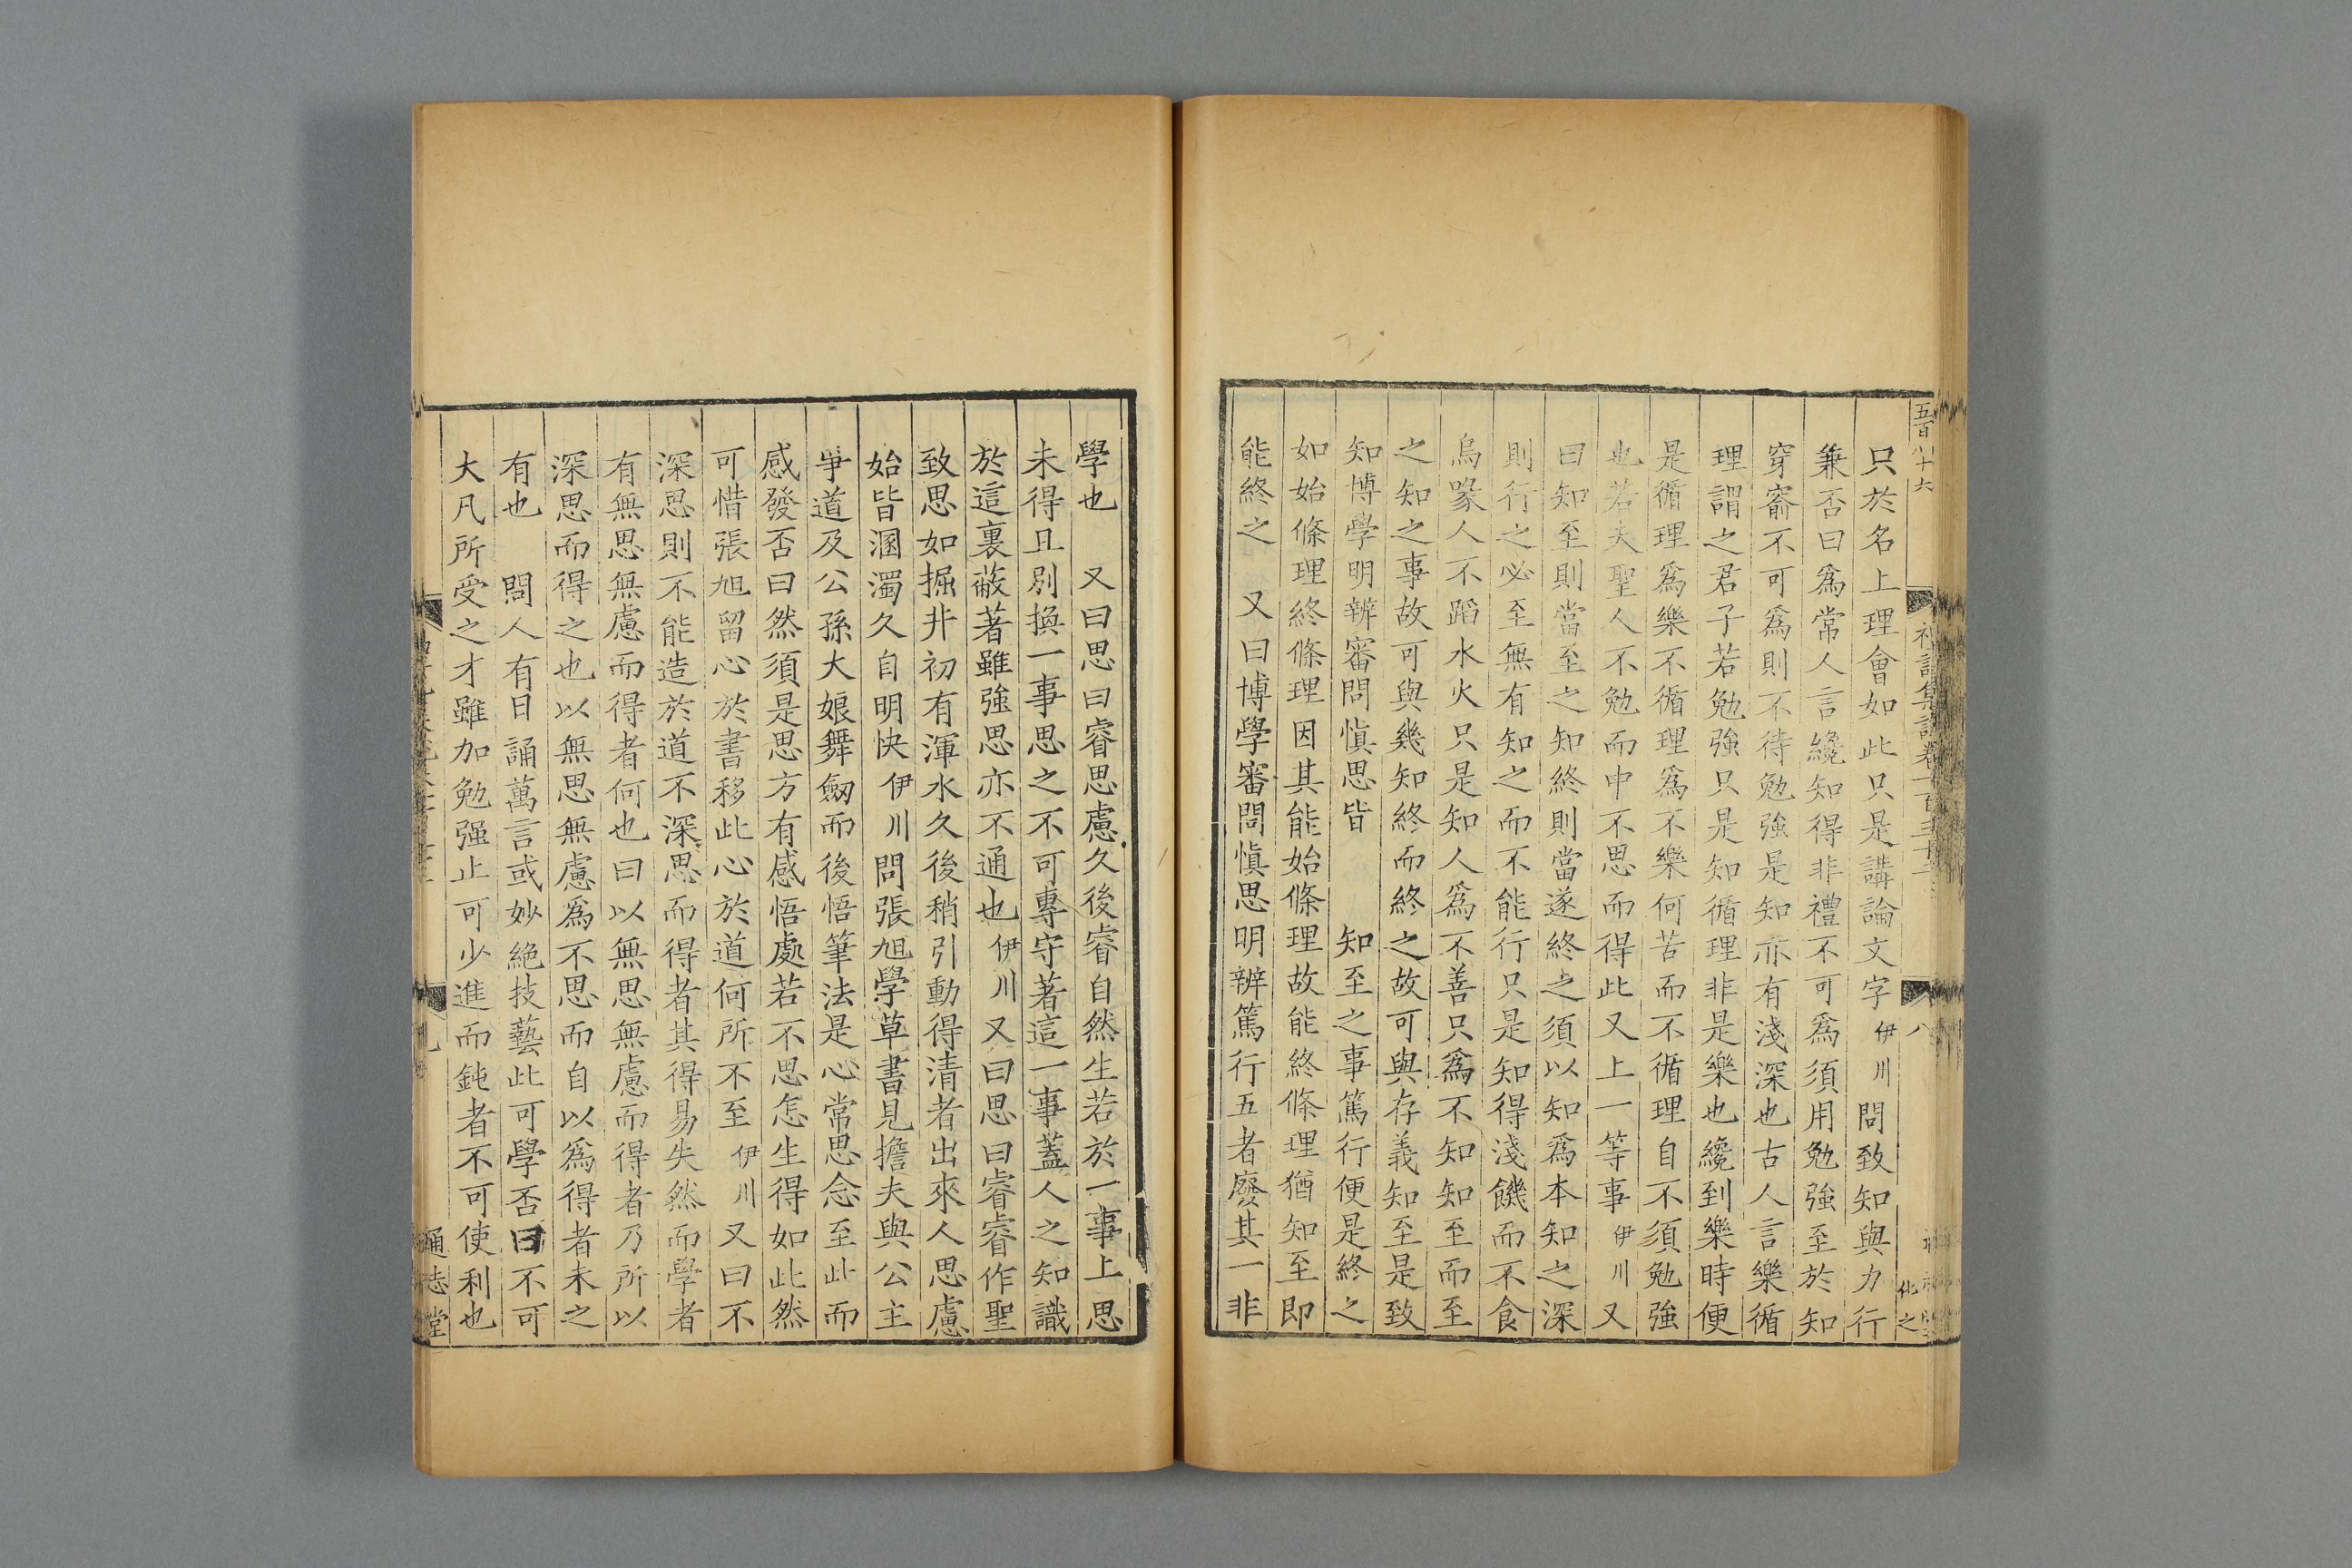 只於名上理會如此只是講論文字伊川問致知與力行
兼否曰爲常人言纔知得非禮不可爲須用勉強至於知
穿窬不可爲則不待勉強是知亦有淺深也古人言樂循
理謂之君子若勉強只是知循理非是樂也纔到樂時便
是循理爲樂不循理爲不樂何苦而不循理自不須勉強
也若夫聖人不勉而中不思而得此又上一等事伊川又
曰知至則當至之知終則當遂終之須以知爲本知之深
則行之必至無有知之而不能行只是知得淺饑而不食
烏喙人不蹈水火只是知人爲不善只爲不知知至而至
之知之事故可與幾知終而終之故可與存義知至是致
知博學明辨審問愼思皆 知至之事篤行便是終之
如始條理終條理因其能始條理故能終條理猶知至即
能終之 又曰博學審問愼思明辨篤行五者廢其一非
學也 又曰思曰睿思慮久後睿自然生若於一事上思
未得且別換一事思之不可專守著這一事蓋人之知識
於這裏蔽著雖強思亦不通也伊川又曰思曰睿睿作聖
致思如掘井初有渾水久後稍引動得清者出來人思慮
始皆溷濁久自明快伊川問張旭學草書見擔夫與公主
爭道及公孫大娘舞劒而後悟筆法是心常思念至此而
感發否曰然須是思方有感悟處若不思怎生得如此然
可惜張旭留心於書移此心於道何所不至伊川又曰不
深思則不能造於道不深思而得者其得易失然而學者
有無思無慮而得者何也曰以無思無慮而得者乃所以
深思而得之也以無思無慮爲不思而自以爲得者未之
有也 問人有日誦萬言或妙絶技藝此可學否曰不可
大凡所受之才雖加勉强止可少進而鈍者不可使利也
通志堂